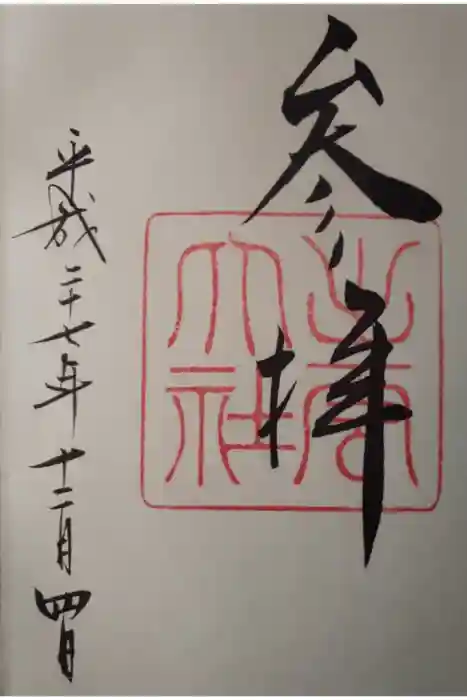 参拝
出雲
大社
平成二十七年十二月四日